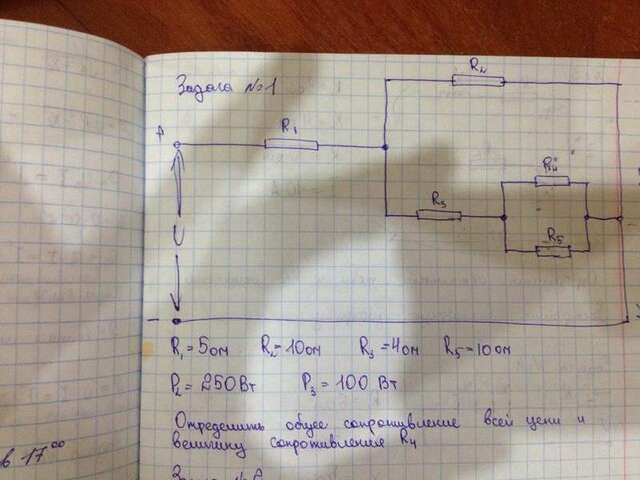 Задача №1
R₂
А
R₁
R₄
R₃
R₅
U
R₁=5ом R₂=10ом R₃=4ом R₅=10ом
P₂=250Вт P₃=100Вт
Определить общее сопротивление всей цепи и
величину сопротивления R₄
в 17⁰⁰